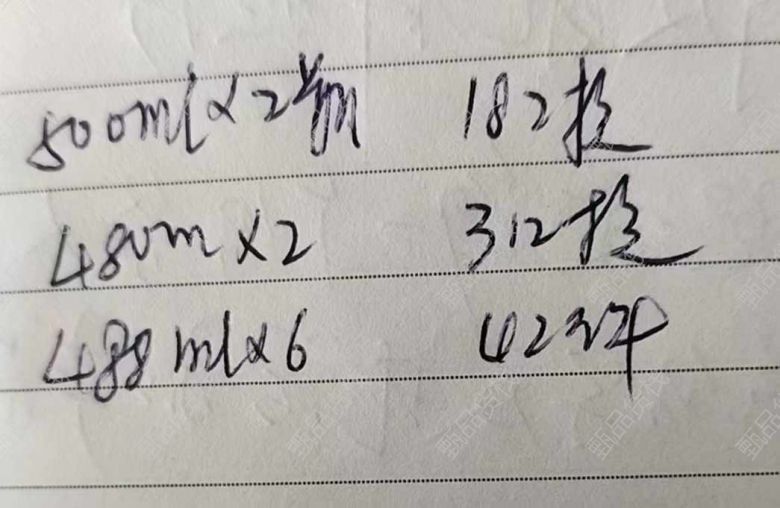 500ml×2瓶 182提
480m×2 312提
488ml×6 42